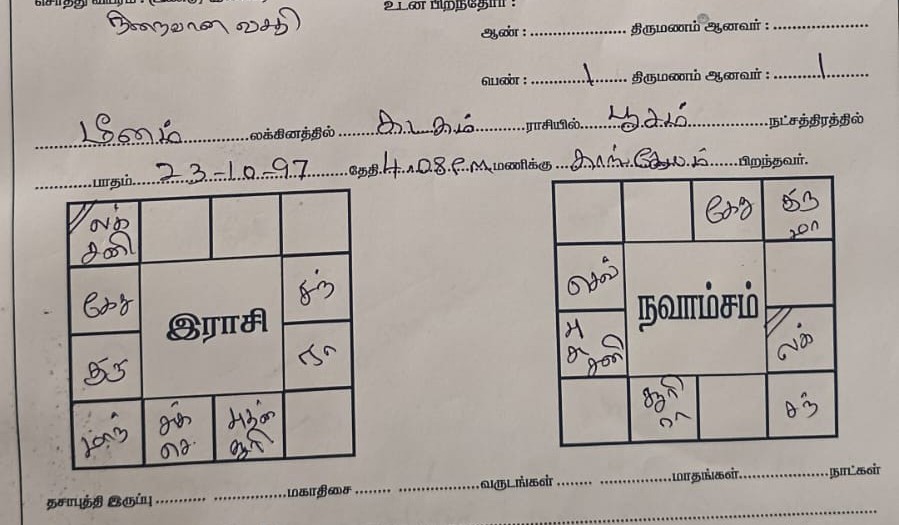 உடன் பிறந்தோர் :
நிறைவான வசதி
ஆண் : .................... திருமணம் ஆனவர் : ....................
பெண் : ..........1....... திருமணம் ஆனவர் : ..........1..........
மீனம் லக்கினத்தில் கடகம் ராசியில் பூசம் நட்சத்திரத்தில்
பாதம் 23-10-97 தேதி 4.08 P.M மணிக்கு காங்கேயம் பிறந்தவர்.
லக் சனி
கேது
குரு
மாந்
சுக் செ
புதன் சூரி
ரா
சந்
இராசி
கேது
குரு மா
செவ்
லக்
சந்
சூரி ரா
பு சு சனி
நவாம்சம்
தசாபுத்தி இருப்பு ........... ....................மகாதிசை ........ ..................வருடங்கள் ........ ................மாதங்கள்....................நாட்கள்